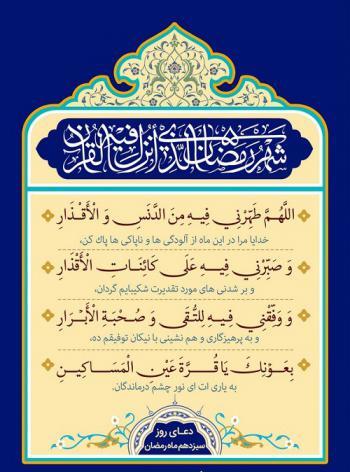 شهر رمضان الذي أنزل فيه القرآن
اللَّهُمَّ طَهِّرْنِي فِيهِ مِنَ الدَّنَسِ وَ الْأَقْذَارِ
خدایا مرا در این ماه از آلودگی ها و ناپاکی ها پاک کن،
وَ صَبِّرْنِي فِيهِ عَلَى كَائِنَاتِ الْأَقْدَارِ
و بر شدنی های مورد تقدیرت شکیبایم گردان،
وَ وَفِّقْنِي فِيهِ لِلتُّقَى وَ صُحْبَةِ الْأَبْرَارِ
و به پرهیزگاری و هم نشینی با نیکان توفیقم ده،
بِعَوْنِكَ يَا قُرَّةَ عَيْنِ الْمَسَاكِينِ
به یاری ات ای نور چشم درماندگان.
دعای روز
سیزدهم ماه رمضان